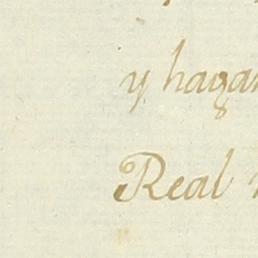 y hagan
Real